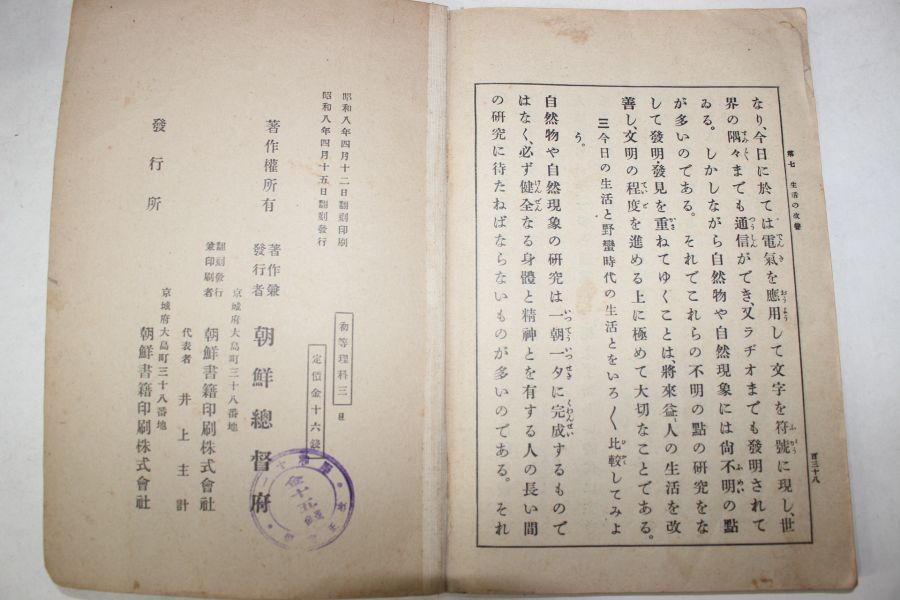 第七 生活の改善
百三十八
なり、今日に於ては電氣を應用して文字を符號に現し、世
界の隅々までも通信ができ、又ラヂオまでも發明されて
ゐる。しかしながら自然物や自然現象には尙不明の點
が多いのである。それでこれらの不明の點の研究をな
して發明・發見を重ねてゆくことは、將來益〻人の生活を改
善し、文明の程度を進める上に極めて大切なことである。
三 今日の生活と野蠻時代の生活とをいろ〱比較してみよ
う。
自然物や自然現象の研究は一朝一夕に完成するもので
はなく、必ず健全なる身體と精神とを有する人の長い間
の研究に待たねばならないものが多いのである。それ
昭和八年四月十二日翻刻印刷
昭和八年四月十五日翻刻發行
初等理科三
定價金十六錢
著作權所有
著作兼發行者 朝鮮總督府
京城府大島町三十八番地
翻刻發行兼印刷者 朝鮮書籍印刷株式會社
代表者 井上主計
京城府大島町三十八番地
發行所 朝鮮書籍印刷株式會社